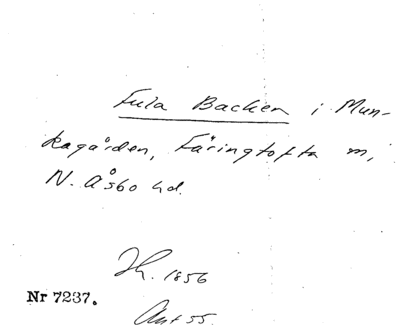 Fula Backen i Mun-
kagården, Färingtofta m,
N. Åsbo hd.
Jh. 1856
Nr 7237.
Ant 55.